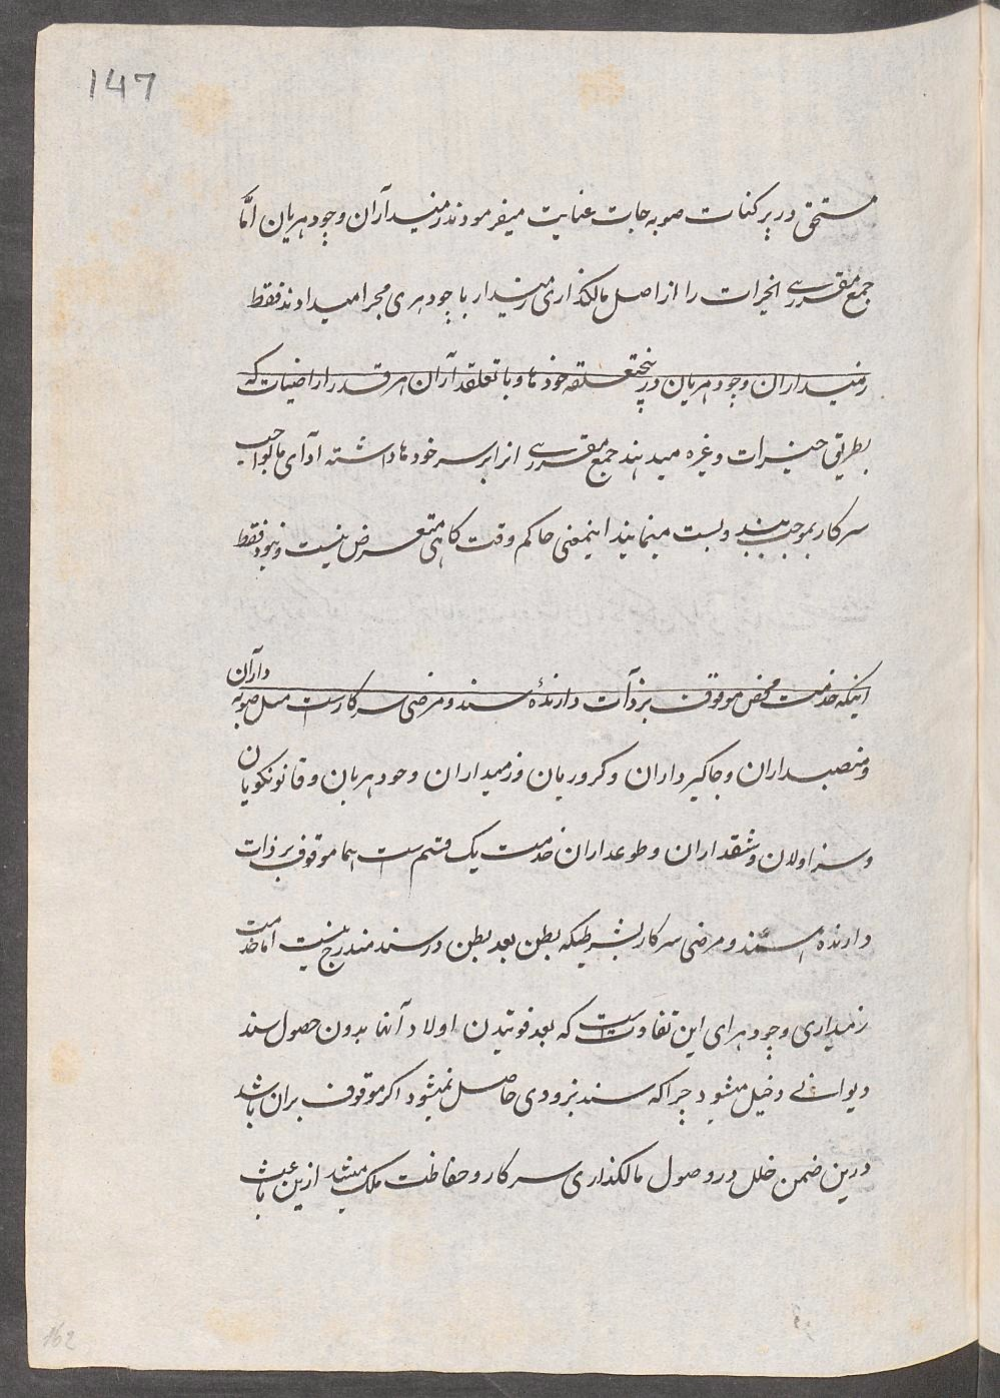 147
مستحق در پرکنات صوبه جات عنایت میفرمودند زمیندآران وچودهریان امّا
جمع مقرری الخیرات را از اصل مالکذاری زمیندار یا چودهری مجرا میدادند فقط
زمینداران وچودهریان در متعلقه خودها و یا تعلقدآران هر قدر اراضیات که
بطریق خیرات وغیره میدهند جمع مقرری انرا بر سر خودها داشته ادآی مالواجب
سرکار بموجب بند وبست مینمایند اینمعنی حاکم وقت کاهی متعرض نیست ونبود فقط
اینکه خدمت محض موقوف بر ذآت دارندهٔ سند و مرضی سرکارست مسل صوبه دآران
و منصبداران وجاکیرداران وکروریان وزمیداران وچودهریان وقانونکویان
وسزاولان وشقداران وطوعداران خدمت یک قسم ست همه موقوف بر ذات
دارنده سند و مرضی سرکار بشرطیکه بطن بعد بطن در سند مندرج نیست اما خدمت
زمیداری وچودهرای این تفاوتست که بعد فوتیدن اولاد آنها بدون حصول سند
دیوانی دخیل میشود چراکه سند بزودی حاصل نمیشود اکر موقوف بران باشد
درین ضمن خلل در وصول مالکذاری سرکار وحفاظت ملک میشد ازین باعث
162